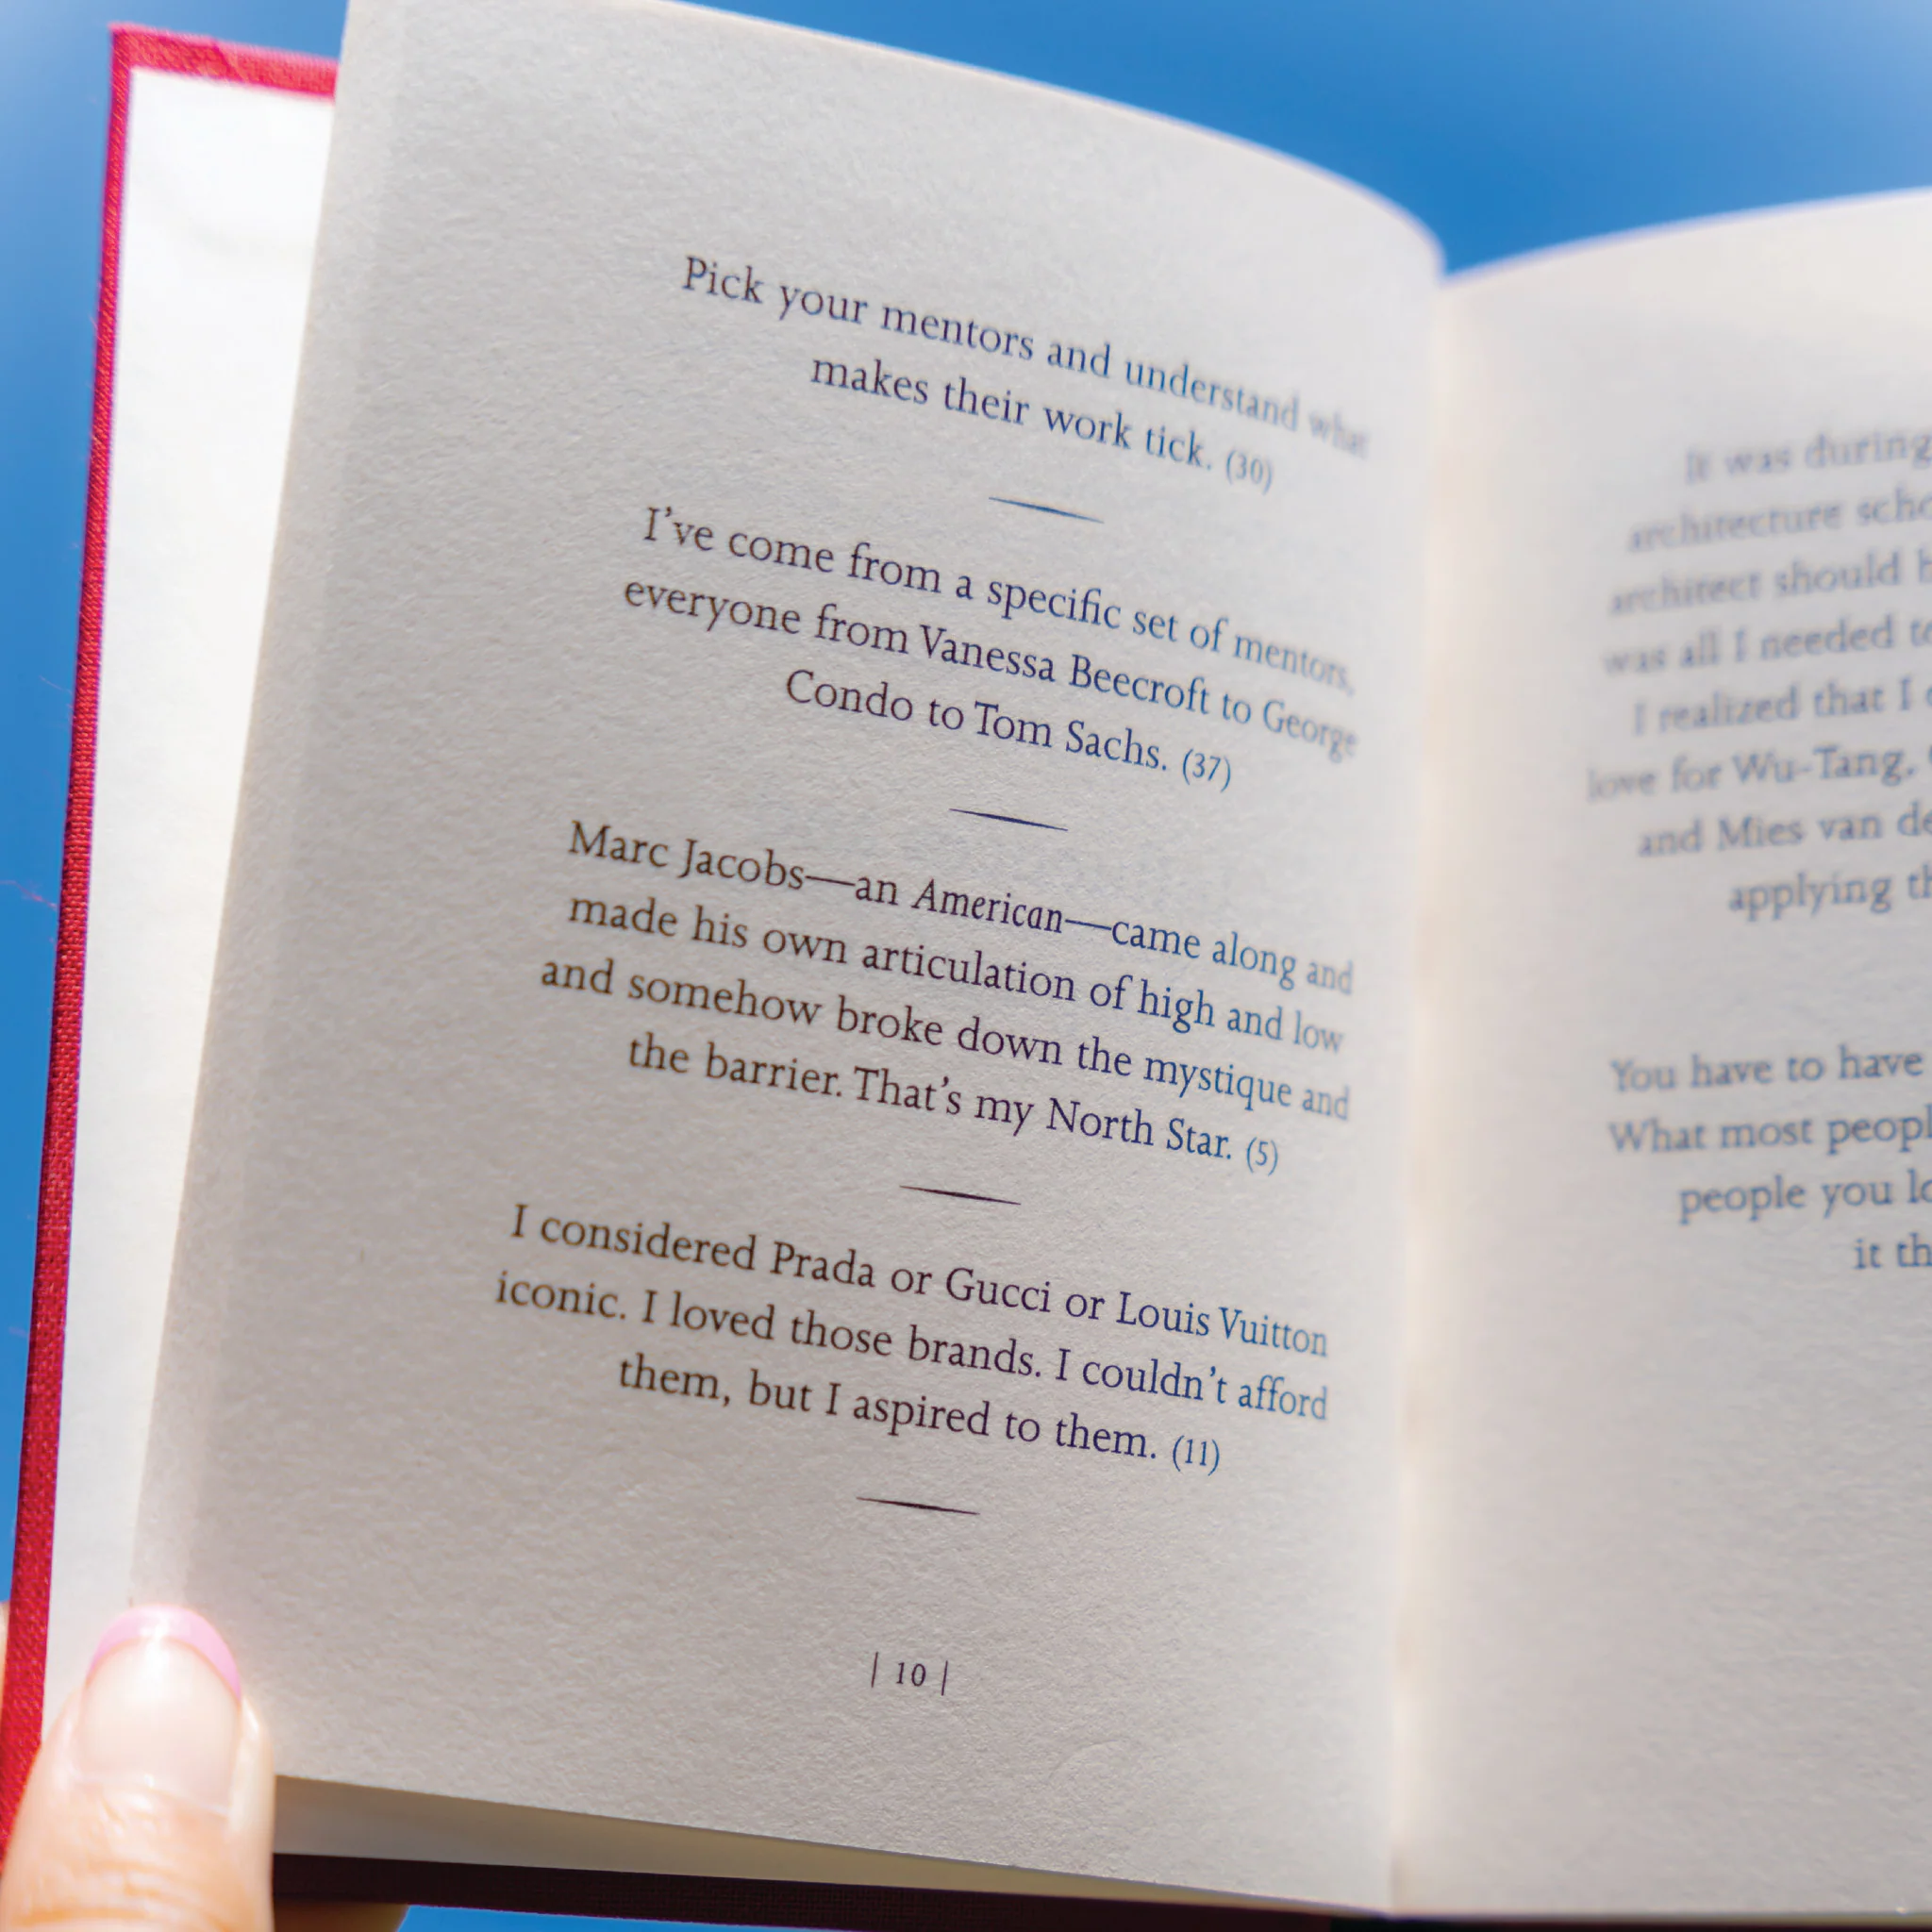 Pick your mentors and understand what
makes their work tick. (30)
I've come from a specific set of mentors,
everyone from Vanessa Beecroft to George
Condo to Tom Sachs. (37)
Marc Jacobs—an American—came along and
made his own articulation of high and low
and somehow broke down the mystique and
the barrier. That's my North Star. (5)
I considered Prada or Gucci or Louis Vuitton
iconic. I loved those brands. I couldn't afford
them, but I aspired to them. (11)
| 10 |
It was during
architecture
architect should
was all I needed
I realized that I
love for Wu-Tang,
and Mies van
applying
You have to have
What most
people you
it